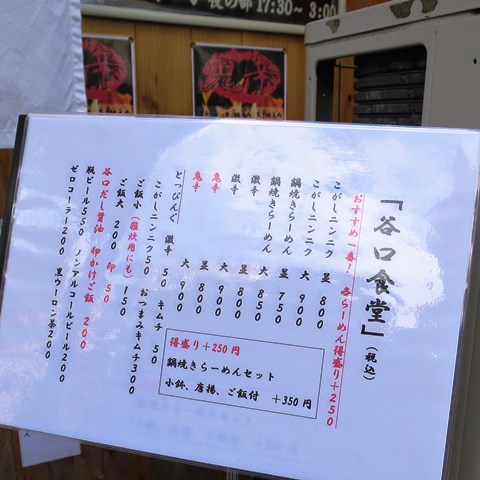 夜の部 17:30~3:00
「谷口食堂」(税込)
おすすめ一番!各らーめん得盛り+250
こがしニンニク 並 800
こがしニンニク 大 900
鍋焼きらーめん 並 750
鍋焼きらーめん 大 850
激辛 並 800
激辛 大 900
鬼辛 並 800
鬼辛 大 900
とっぴんぐ 激辛 50 キムチ 50
こがしニンニク50 おつまみキムチ300
ご飯小(雑炊用にも) 150
ご飯大 200
谷口だし醤油 卵かけご飯 200
卵 50
瓶ビール550 ノンアルコールビール200
ゼロコーラー200 黒ウーロン茶200
得盛り+250円
鍋焼きらーめんセット
小鉢、唐揚、ご飯付 +350円